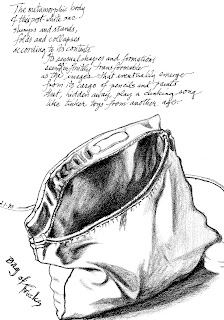 The metamorphic body
of this soft white one
slumps and stands,
folds and collapses
according to its contents.
Its sensual shapes and formations
seem infinitely transformable
as the images that eventually emerge
from its cargo of pencils and paints
that, hidden away, play a clinking song
like tinker toys from another age.
Bag of Tricks